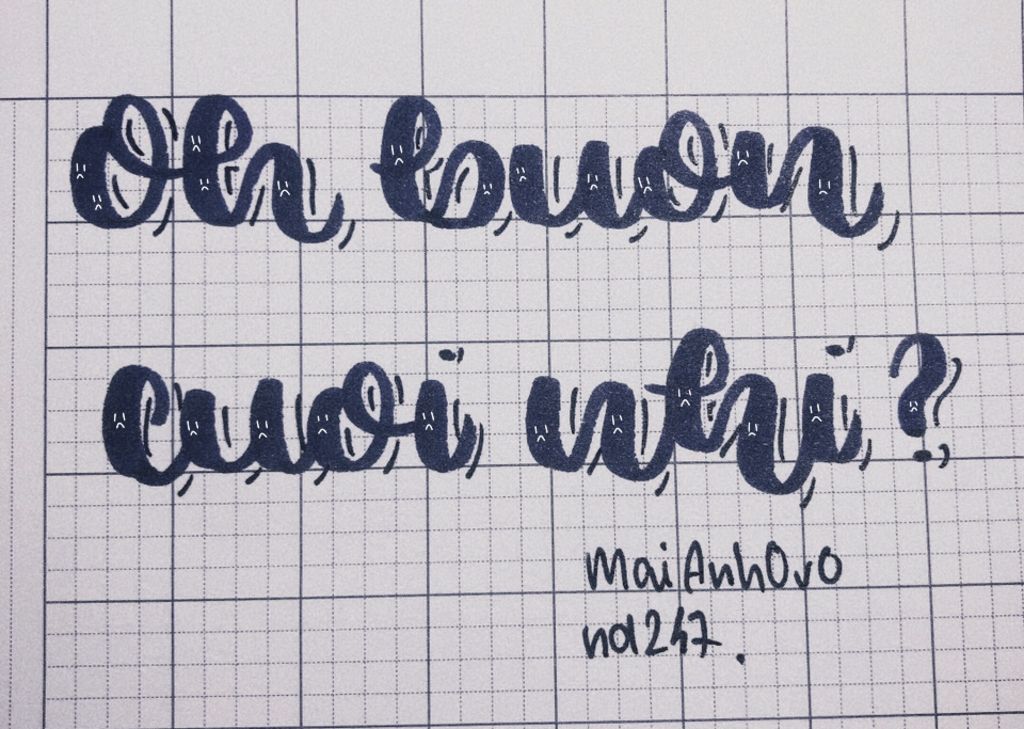 Oh buon
cuoi nhi ?
MaiAnhOvO
nd247.